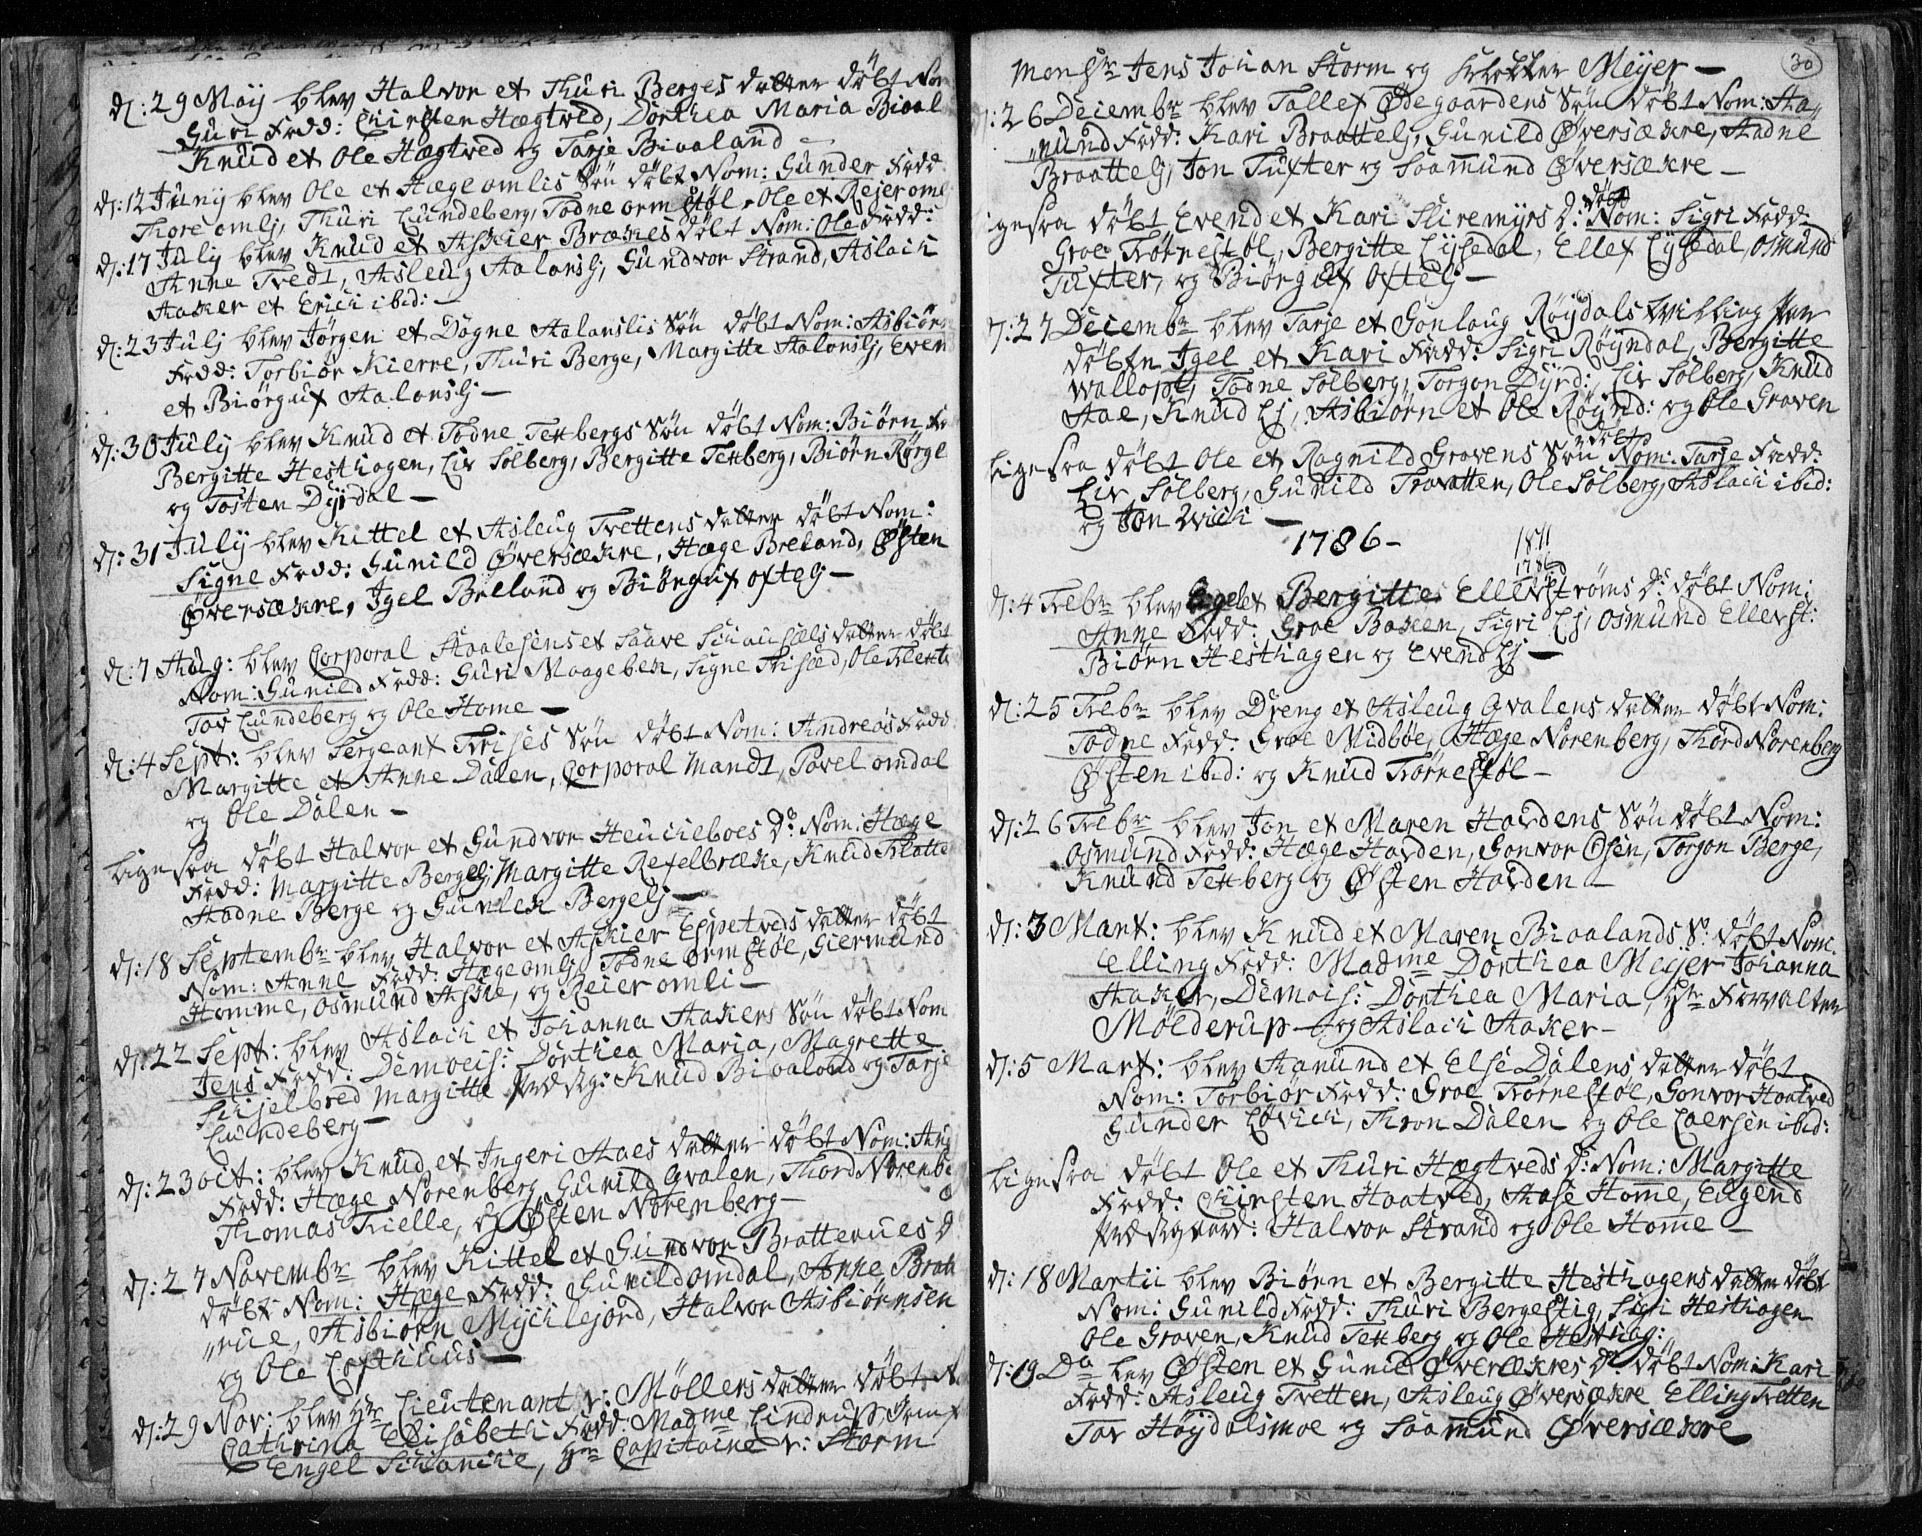 d: 29 Maij blev Halvor et Thuri Berges datter döbt Nom
Guri Fadd: Kirsten Hægtved, Dorthea Maria Bioal
Knud et Ole Hægtved og Tarje Bioaland
d: 12 Junij blev Ole et Hæge omlis Sön döbt Nom: Gunder Fadd
Thore omlj, Thuri Lundeberg, Todne ormstöl, Ole et Rejer oml
d: 17 Julij blev Knud et Askier Brækes döbt Nom: Ole Fadd:
Anne Tvedt, Asleug Aalanslj, Gundvor Strand, Aslach
Aaker et Erich ibid:
d: 23 Julj blev Jörgen et Dogne Aalanslis Sön döbt Nom: Asbiörn
Fadd: Torbiör Kierre, Thuri Berge, Margitte Aalanslj, Even
et Biörguf Aalanslj
d: 30 July blev Knud et Todne Tettbergs Sön döbt Nom: Biörn Fa
Bergitte Hesthagen, Liv Solberg, Bergitte Tettberg, Biörn
og Tosten Dyrdal
d: 31 July blev Kittel et Asleug Tvettens datter döbt Nom:
Signe Fadd: Gunild Översækre, Hæge Breland, Østen
Översækre, Igel og Biörguf oftelj
d: 7 Aug: blev Corporal et Saave datter döbt
Nom: Gunild Fadd: Guri Maageben, Signe Ole
Tov Lundeberg og Ole Home
d: 4 Sept: blev Sergeant Sön döbt Nom: Andreas Fadd
Margitte et Anne Dalen, Corporal Mandt, Povel omdal
og Ole Dalen
Ligesaa döbt Halvor et Gundvor Heuckeboes D: Nom: Hæge
Fadd: Margitte Bergelj, Margitte Refelbræke, Knud
Aadne Berge og Gunlek Bergelj
d: 18 Septembr blev Halvor et Askier Espetveds datter döbt
Nom: Anne Fadd: Hæge omlj, Todne ormstöl, Giermund
Homme, Osmund Aske, og Reier omli
d: 22 Sept: blev Aslach et Johanna Aakers Sön döbt Nom
Jens Fadd: Demoeis: Dorthea Maria, Magrette
Margitte Prædsg: Knud Bioaland og Tarje
Lundeberg
d: 23 oct: blev Knud et Ingeri Aaes datter döbt Nom:
Fadd: Hæge Norenberg, Gunild Qvalen, Thord Norenbe
Thomas Kielle, og Østen Norenberg
d: 27 Novembr blev Kittel et Gundvor Brattenues D
döbt Nom: Hæge Fadd: Gunild omdal, Anne Bratt
nue, Asbiörn Mychlejord, Halvor Asbiörnsen
og Ole Lofthuus
d: 29 Nov: blev Hr Lieutenant v: Möllers datter döbt
Cathrina Elisabeth Fadd: Madme
Engel Hr Capitaine v: Storm
30
Monsr Jens Johan Storm og Klokker Meyer
d: 26 Decembr blev Tallef Ødegaardens Sön döbt Nom: Aa
mund Fadd: Kari Braattelj, Gunild Översækre, Aadne
Braattelj, Jon Tufter og Saamund Översækre
döbt
Ligesaa döbt Evend et Kari Sliremyrs D: Nom: Sigri Fadd:
Groe Trönestöl, Bergitte Lyssedal, Ellef Lyssedal, Osmund
Tufter, og Biörguf oftelj
d: 27 Decembr blev Tarje et Gonlaug Röydals Par
döbt Igel et Kari Fadd: Sigri Röyndal, Bergitte
Todne Solberg, Torgon Dyrd:, Liv Solberg, Knud
Aae, Knud Lj, Asbiörn et Ole Röynd: og Ole Groven
Ligesaa döbt Ole et Ragnild Grovens Sön Nom: Tarje Fadd:
Liv Solberg, Gunild Ole Solberg, Aslach ibid:
og Jon Wich
1786
1811
1786
d: 4 Febr blev et Bergitte Ellevströms D: döbt Nom:
Anne Fadd: Groe Sigri Lj, Osmund Ellevst:
Biörn Hesthagen og Evend Lj
d: 25 Febr blev Dreng et Asleug Qvalens datter döbt Nom:
Todne Fadd: Groe Midböe, Hæge Norenberg, Thord Norenberg
Østen ibid: og Knud Trönestöl
d: 26 Febr blev Jon et Maren Havdens Sön döbt Nom:
Osmund Fadd: Hæge Havden, Gonvor Osen, Torgon Berge,
Knud Tettberg og Østen Havden
d: 3 Mart: blev Knud et Maren Bioalands S: döbt Nom
Elling Fadd: Madme Dorthea Meyer Johanna
Aaker, Demois: Dorthea Maria, Hr Forvalter
Mölderup og Aslach Aaker
d: 5 Mart: blev Aamund et Else Dalens datter döbt
Nom: Torbiör Fadd: Groe Trönestöl, Gonvor Haatved
Gunder Tron Dalen og Ole Laersen ibid:
Ligesaa döbt Ole et Thuri Hægtveds D: Nom: Margitte
Fadd: Kirsten Haatved, Aase Home, Eugend
Prædsgaard: Halvor Strand og Ole Home
d: 18 Martii blev Biörn et Bergitte Hesthagens datter döbt
Nom: Gunild Fadd: Thuri Bergestig, Sigri Hesthagen
Ole Groven, Knud Tettberg og Ole Hesthag:
d: 19 Do blev Østen et Gunild Överækres D: döbt Nom: Kari
Fadd: Asleug Tvetten, Asleug Översækre Elling Tvetten
Tov Höydalsmoe og Saamund Översækre